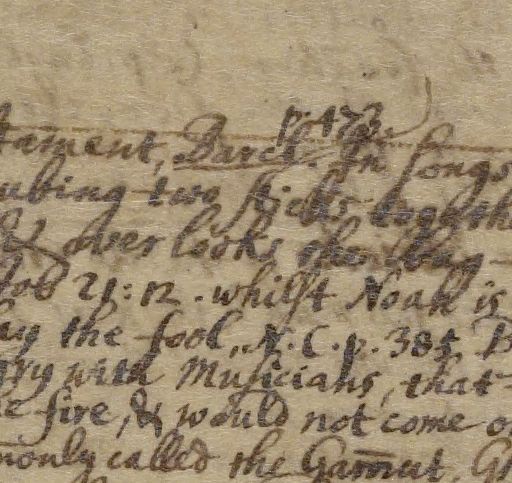 p. 473.
tament, Darel In songs
rubing two sticks togethe
& over looks
Job 21: 12. whilst Noah is
lay the fool, N. C. p. 385. B
gry with Musicians, that
e fire, & would not come o
monly called the Gam̄ut, G